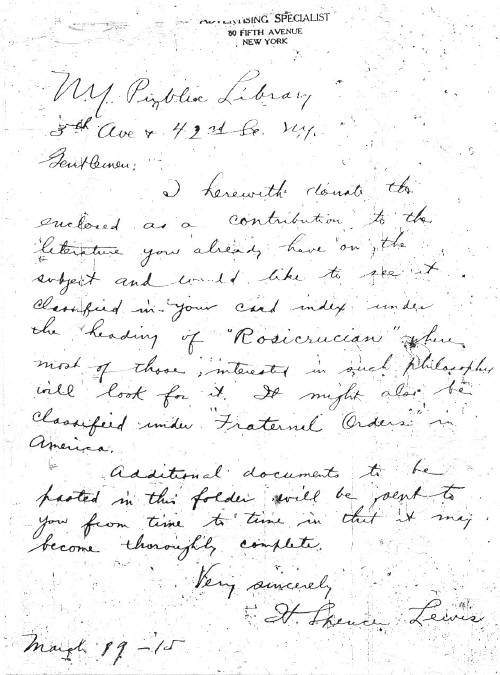 ADVERTISING SPECIALIST
80 FIFTH AVENUE
NEW YORK
N.Y. Public Library
5th Ave & 42nd St. N.Y.
Gentlemen:
I herewith donate the
enclosed as a contribution to the
literature you already have on the
subject and would like to see it
classified in your card index under
the heading of "Rosicrucian" where
most of those interested in such philosophy
will look for it. It might also be
classified under "Fraternal Orders" in
America.
Additional documents to be
pasted in this folder will be sent to
you from time to time in that it may
become thoroughly complete.
Very sincerely
H. Spencer Lewis
March -15